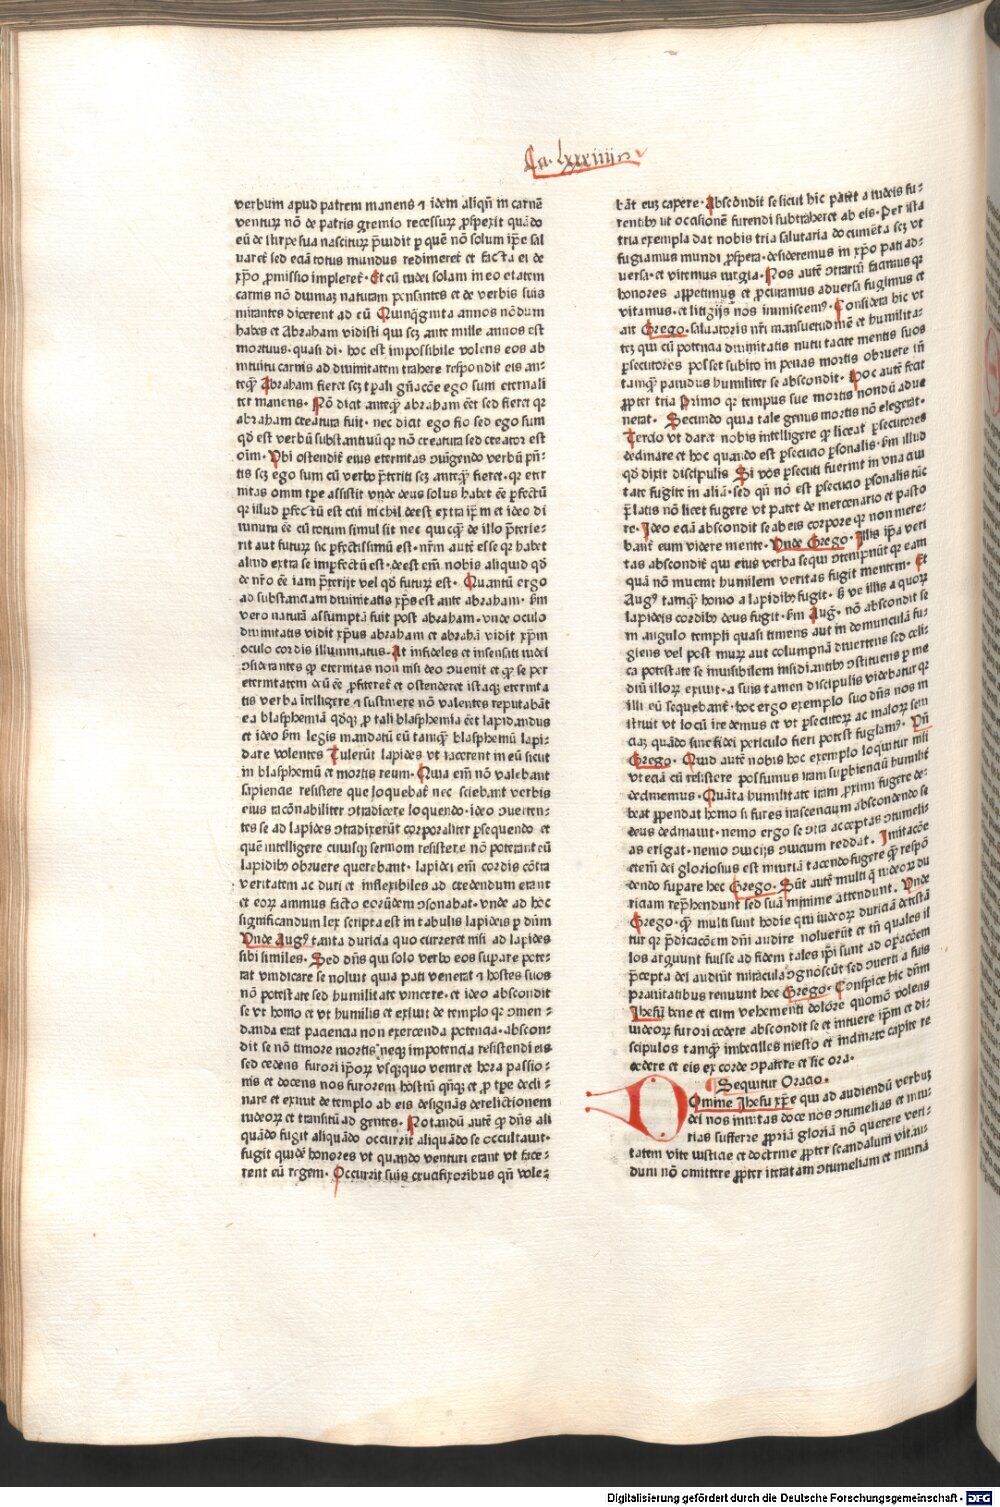 Ca. lxxxiiii
verbum apud patrem manens ⁊ idem aliqñ in carnē
venturꝰ nō de patris gremio recessurꝰ ꝓspexit quādo
eū de stirpe sua nasciturꝰ p̄uidit ꝑ quē nō solum ip̄e sal
uaret̄ sed eciā totus mundus redimeret̄ et facta ei de
xp̄o ꝓmissio impleret̄. Et cū iudei solam in eo etatem
carnis nō diuinaꝫ naturam pensantes et de verbis suis
mirantes dicerent ad eū Quinq̄ginta annos nōdum
habes et Abraham vidisti qui scꝫ ante mille annos est
mortuus. quasi di. hoc est impossibile volens eos ab
intuitu carnis ad diuinitatem trahere respondit eis an-
teq̄ꝫ Abraham fieret scꝫ tp̄ali gn̄acōne ego sum eternali
ter manens. Nō dicit anteq̄ꝫ abraham eēt sed fieret qꝛ
abraham creatura fuit. nec dicit ego fio sed ego sum
qd̄ est verbū substantiuū qꝛ nō creatura sed creator est
oīm. Vbi ostendit̄ eius eternitas ꝯiūgendo verbū p̄n-
tis scꝫ ego sum cū verbo p̄teriti scꝫ anteq̄ꝫ fieret. qꝛ eter
nitas omni tꝑe assistit vnde deus solus habet eē ꝑfectū
qꝛ illud ꝑfectū est cui nichil deest extra ip̄m et ideo di
uinum eē cū totum simul sit nec quicq̄ꝫ de illo p̄terie-
rit aut futurꝫ sic ꝑfectissimū est. nr̄m autē esse qꝛ habet
aliud extra se imꝑfectū est. deest em̄ nobis aliquid qd̄
de nr̄o eē iam p̄terijt vel qd̄ futurꝫ est. Quantū ergo
ad substanciam diuinitatis xp̄s est ante abraham. s̄m
vero naturā assumptā fuit post abraham. vnde oculo
diuinitatis vidit xp̄us abraham et abrahā vidit xp̄m
oculo cordis illuminatus. At infideles et insensati iudei
ꝯsiderantes ꝙ eternitas non nisi deo ꝯuenit et ꝙ se per
eternitatem deū eē ꝓfiteret̄ et ostenderet istaqꝫ eternita
tis verba ītelligere ⁊ sustinere nō valentes reputabāt
ea blasphemiā qd̄qꝫ ꝓ tali blasphemia eēt lapidandus
et ideo s̄m legis mandatū eū tamq̄ꝫ blasphemū lapi-
dare volentes Tulerūt lapides vt iacerent in eū sicut
in blasphemū et mortis reum. Quia em̄ nō valebant
sapiencie resistere que loquebat̄ nec sciebant verbis
eius racōnabiliter ꝯtradicere loquendo. ideo ꝯuerten-
tes se ad lapides ꝯtradixerūt corporaliter ꝑsequendo et
quē intelligere cuiusqꝫ sermoni resistere nō poterant eū
lapidibꝫ obruere querebant. lapidei em̄ cordis cōtra
veritatem ac duri et inflexibiles ad credendum erant
et eorꝫ animus facto eorūdem ꝯsonabat. vnde ad hoc
significandum lex scripta est in tabulis lapideis ꝑ dn̄m
Vnde Augꝰ tanta duricia quo curreret nisi ad lapides
sibi similes. Sed dn̄s qui solo verbo eos suꝑare pote-
rat vindicare se noluit quia pati venerat ⁊ hostes suos
nō potestate sed humilitate vincere. et ideo abscondit
se vt homo et vt humilis et exiuit de templo qꝛ ꝯmen-
danda erat paciencia non exercenda potencia. abscon-
dit se nō timore mortis neqꝫ impotencia resistendi eis
sed cedens furori ip̄orꝫ vsqꝫquo veniret hora passio-
nis et docens nos furorem hostiū qn̄qꝫ et ꝓ tꝑe decli-
nare et exiuit de templo ab eis designās derelictionem
iudeorꝫ et transitū ad gentes. Notandū autē ꝙ dn̄s ali
quādo fugit aliquādo occurrit aliquādo se occultauit.
fugit quidē honores vt quando venturi erant vt face-
rent eū regem. Occurrit suis crucifixoribus qn̄ vole-
bāt eūꝫ capere. Abscōndit se sicut hic patet a iudeis fu-
rentibꝫ ut occasionē furendi subtraheret ab eis. Per ista
tria exempla dat nobis tria salutaria documēta scꝫ vt
fugiamus mundi ꝓspera. desideremus in xp̄o pati ad-
uersa. et vitemus iurgia. Nos autē ꝯtrariū facimus qꝛ
honores appetimus et ꝓcuramus aduersa fugimus et
vitamus. et litigijs nos inmiscemꝰ. Considera hic vt
ait Grego. saluatoris nr̄i mansuetudinē et humilita-
teꝫ qui cū potencia diuinitatis nutu tacite mentis suos
ꝑsecutores posset subito in penas mortis obruere in̄
tamq̄ꝫ pauidus humiliter se abscondit. Hoc autē fecit
ꝓpter tria Primo qꝛ tempus sue mortis nondū adue
nerat. Secundo quia tale genus mortis nō elegerat.
Tercio vt daret nobis intelligere ꝙ liceat ꝑsecutores
declinare et hoc quando est ꝑsecucio ꝑsonalis. s̄m illud
qd̄ dixit discipulis Si vos ꝑsecuti fuerint in vna ciui
tate fugite in aliā. sed qn̄ nō est ꝑsecucio ꝑsonalis tūc
p̄latis nō licet fugere vt patet de mercenario et pasto
re. Ideo eciā abscondit se ab eis corpore qꝛ non mere-
bant̄ eum videre mente. Vnde Grego. Illis ip̄a veri
tas abscondit̄ qui eius verba sequi ꝯtempnūt qꝛ eam
quā nō inuenit humilem veritas fugit mentem. Et
Augꝰ tamq̄ꝫ homo a lapidibꝫ fugit. sꝫ ve illis a quorꝫ
lapideis cordibꝫ deus fugit. s̄m Aug. nō abscondit se
in angulo templi quasi timens aut in domunculā fu-
giens vel post murꝫ aut columpnā diuertens sed celi-
ca potestate se inuisibilem insidiantibꝫ ꝯstituens ꝑ me
diū illorꝫ exiuit. a suis tamen discipulis videbatur qꝛ
illi eū sequebant̄. hoc ergo exemplo suo dn̄s nos in
struit vt locū ire demus et vt ꝑsecutorꝫ ac malorꝫ seui
ciaꝫ quādo sine fidei periculo fieri potest fugiamꝰ. Vn̄
Grego. Quid autē nobis hoc exemplo loquitur nisi
vt eciā cū resistere possumus iram suꝑbienciū humilit̄
declinemus. Quāta humilitate iram ꝓximi fugere de-
beat ꝓpendat homo si furēs irascencium abscondendo se
deus declinauit. nemo ergo se ꝯtra acceptas ꝯtumeli-
as erigat. nemo ꝯuicijs ꝯuicium reddat. Imitacōe
etem̄ dei gloriosius est iniuriā tacendo fugere q̄ꝫ respō
dendo suꝑare hec Grego. Sūt autē multi q̄ iudeorꝫ du
riciam rep̄hendunt sed suā minime attendunt. Vnde
Grego. ꝙ multi sunt hodie qui iudeorꝫ duriciā detestā
tur qꝛ p̄dicacōem dn̄i audire noluerūt et in̄ quales il
los arguunt fuisse ad fidem tales ip̄i sunt ad oꝑacōem
p̄cepta dei audiūt miracula ꝯgnoscūt sed ꝯuerti a suis
prauitatibus renuunt hec Grego. Conspice hic dn̄m
Jhesū bene et cum vehementi dolore quomō volens
iudeorꝫ furori cedere abscondit se et intuere ip̄m et di-
scipulos tamq̄ꝫ imbecilles mesto et inclinato capite re
cedere et eis ex corde ꝯpatere et sic ora.
Sequitur Oracio.
Domine Jhesu xp̄e qui ad audiendū verbuꝫ
dei nos inuitas doce nos ꝯtumelias et iniu-
rias sufferre ꝓpriā gloriā nō querere veri-
tatem vite iusticie et doctrine ꝓpter scandalum vitan-
dum nō omittere ꝓpter iteratam ꝯtumeliam et iniuriā
Digitalisierung gefördert durch die Deutsche Forschungsgemeinschaft - DFG